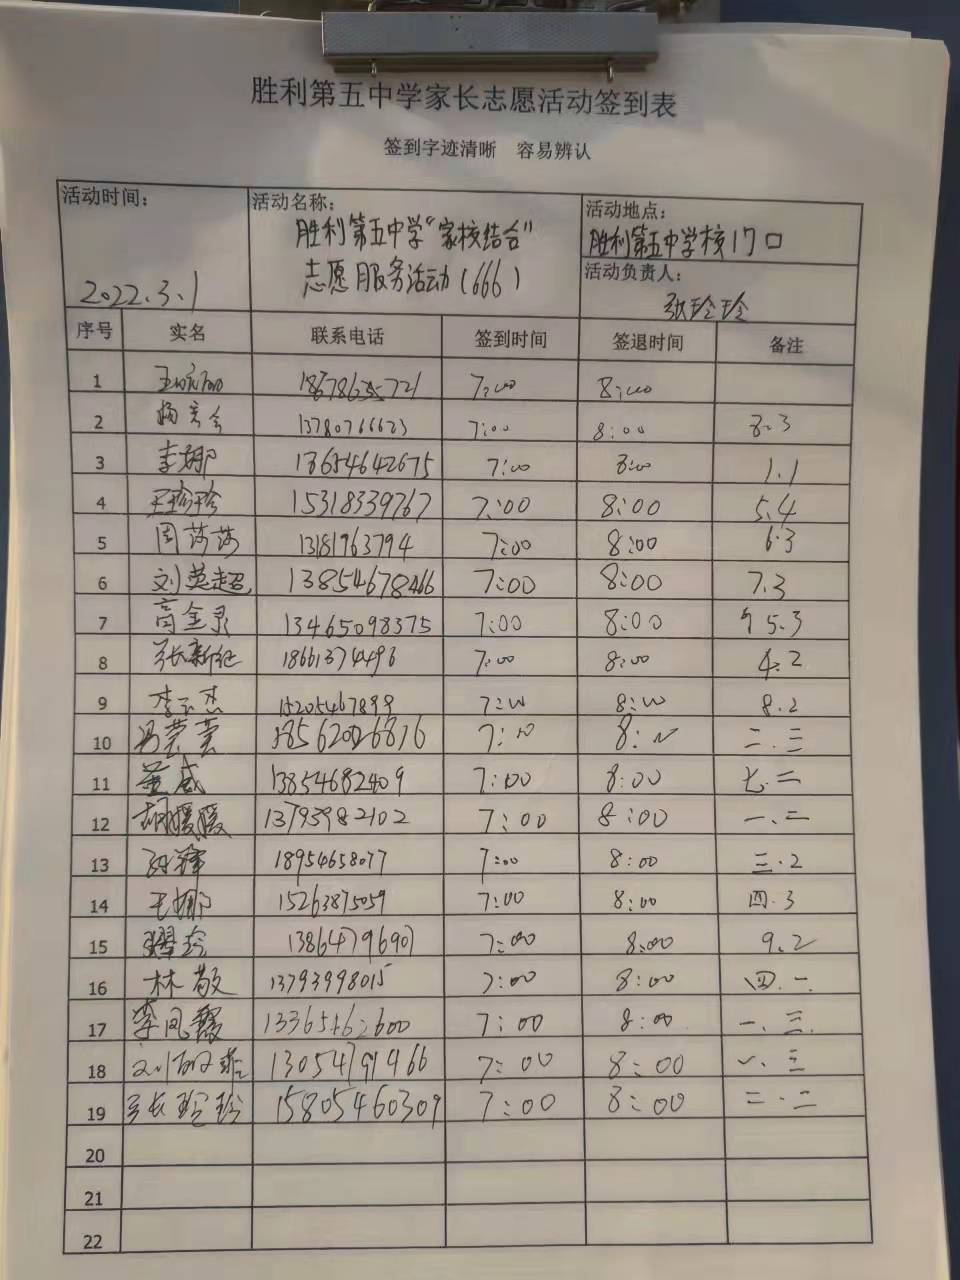 胜利第五中学家长志愿活动签到表
签到字迹清晰 容易辨认
活动时间： 2022.3.1
活动名称： 胜利第五中学“家校结合”
志愿服务活动（666）
活动地点：
胜利第五中学校门口
活动负责人：
张玲玲
序号 实名 联系电话 签到时间 签退时间 备注
1 7:00 8:00
2 13780766623 7:00 8:00 8.3
3 李娜 13654642675 7:00 8:00 1.1
4 王珍珍 15318339767 7:00 8:00 5.4
5 周莎莎 13181963794 7:00 8:00 6.3
6 刘英超 13854678466 7:00 8:00 7.3
7 高金录 13465098375 7:00 8:00 5.3
8 张新征 18661374496 7:00 8:00 4.2
9 李玉杰 15205467899 7:00 8:00 8.2
10 冯芸芸 7:00 8:00 二.三
11 董威 13854682409 7:00 8:00 七.二
12 胡媛媛 13793982102 7:00 8:00 一.二
13 18954658077 7:00 8:00 三.2
14 王娜 15263875059 7:00 8:00 四.3
15 13864796907 7:00 8:00 9.2
16 林敬 13793998015 7:00 8:00 四.一
17 李凤霞 7:00 8:00 一.三.
18 13054791966 7:00 8:00 一.三
19 张玲玲 15805460309 7:00 8:00 二.二
20
21
22